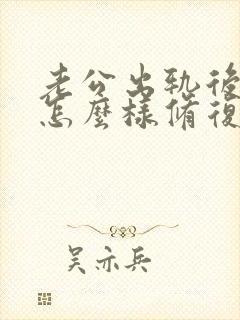 老公出轨後
怎麼樣脩復
吴亦兵